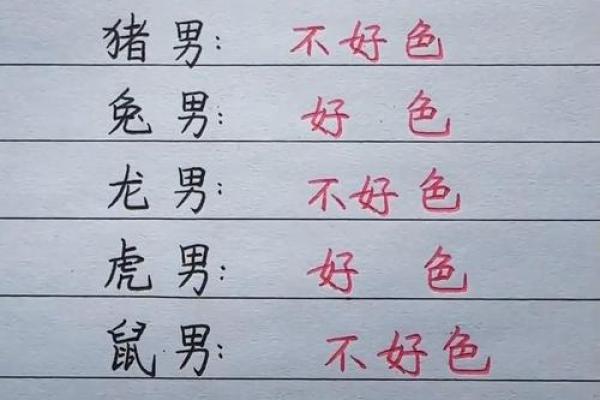 猪男: 不好色
兔男: 好 色
龙男: 不好色
虎男: 好 色
鼠男: 不好色